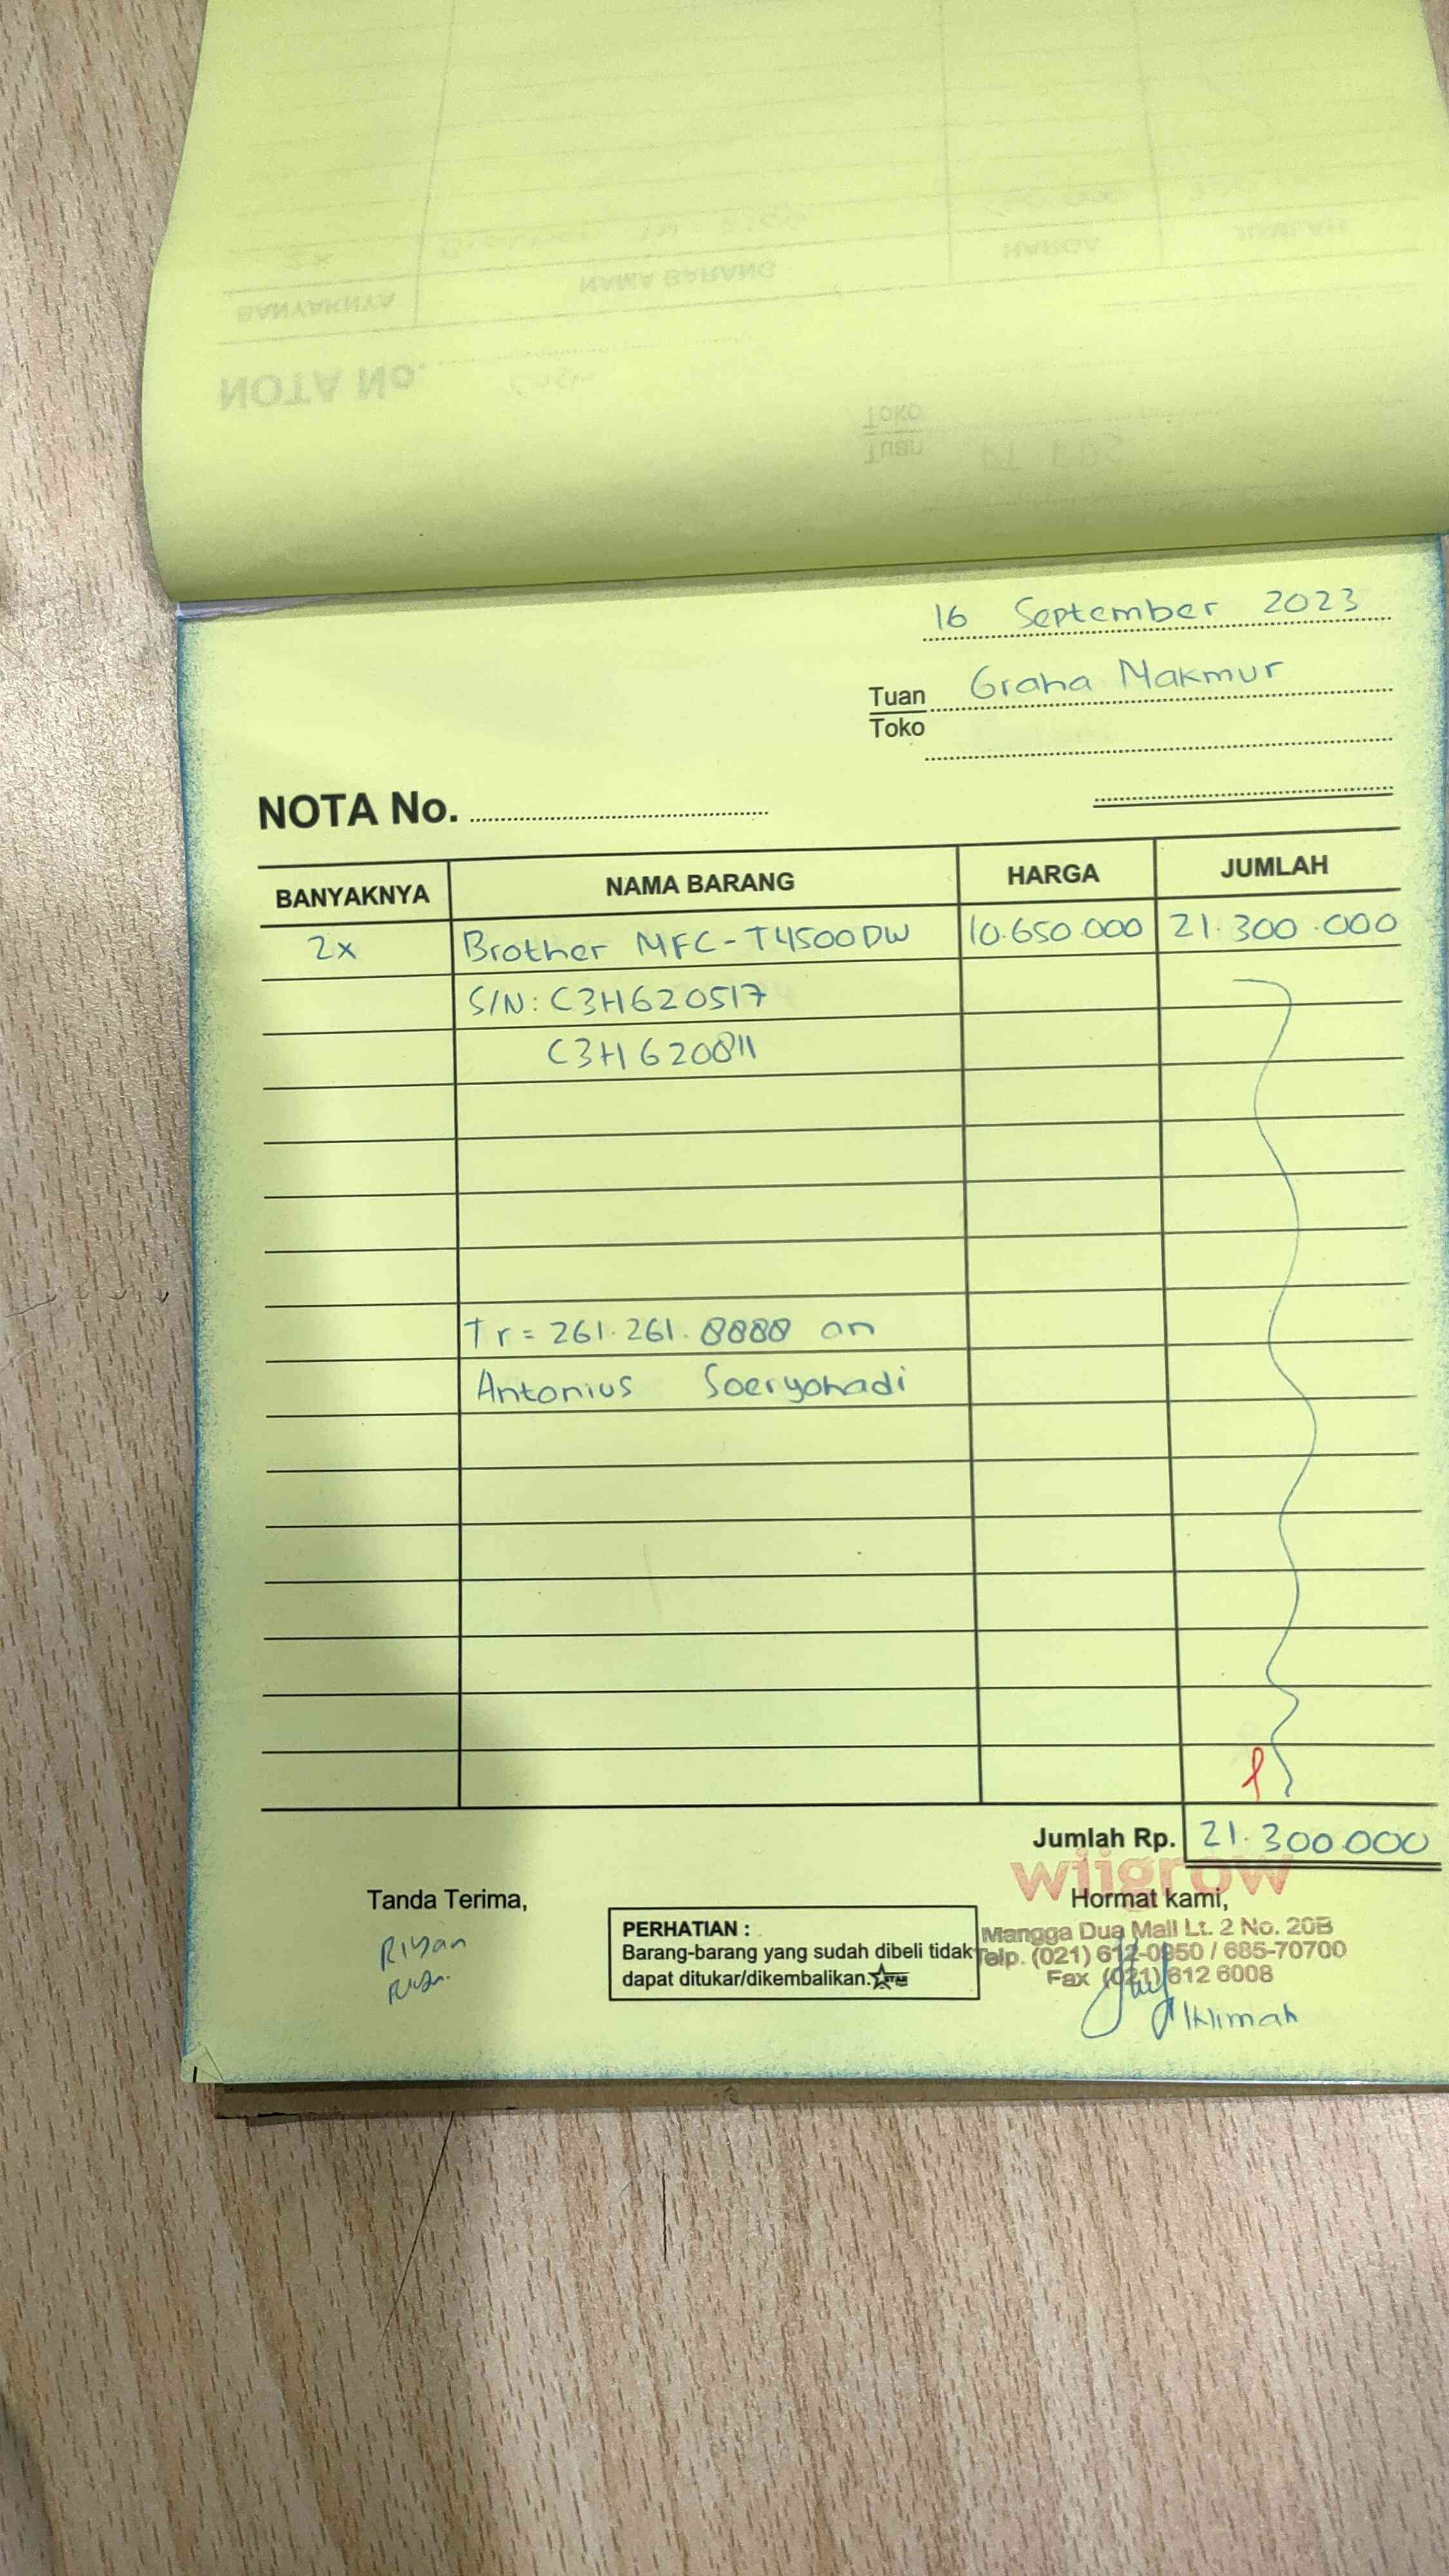 16 September 2023
Tuan Graha Makmur
Toko
NOTA No.
BANYAKNYA NAMA BARANG HARGA JUMLAH
2x Brother MFC-T4500DW 10.650.000 21.300.000
S/N: C3H620517
C3H620811
Tr = 261.261.8888 an
Antonius Soeryohadi
Jumlah Rp. 21.300.000
wiigrow
Tanda Terima, Hormat kami,
Riyan
PERHATIAN :
Barang-barang yang sudah dibeli tidak
dapat ditukar/dikembalikan.
Mangga Dua Mall Lt. 2 No. 20B
Telp. (021) 612-0950 / 685-70700
Fax (021) 612 6008
Iklimah